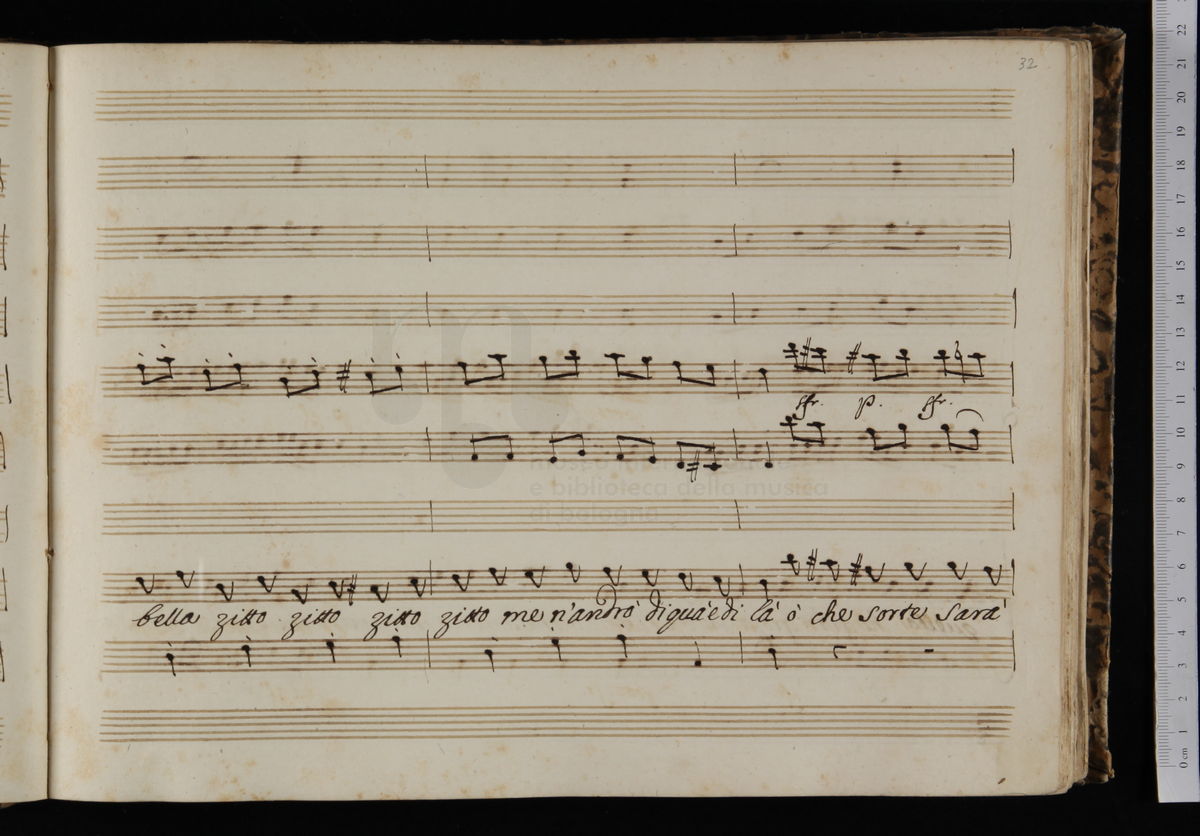 32
sfr. p. sfr.
museo internazionale
e biblioteca della musica
di bologna
bella zitto zitto zitto zitto me n'andrò di quà e di là ò che sorte sarà
0 cm 1 2 3 4 5 6 7 8 9 10 11 12 13 14 15 16 17 18 19 20 21 22